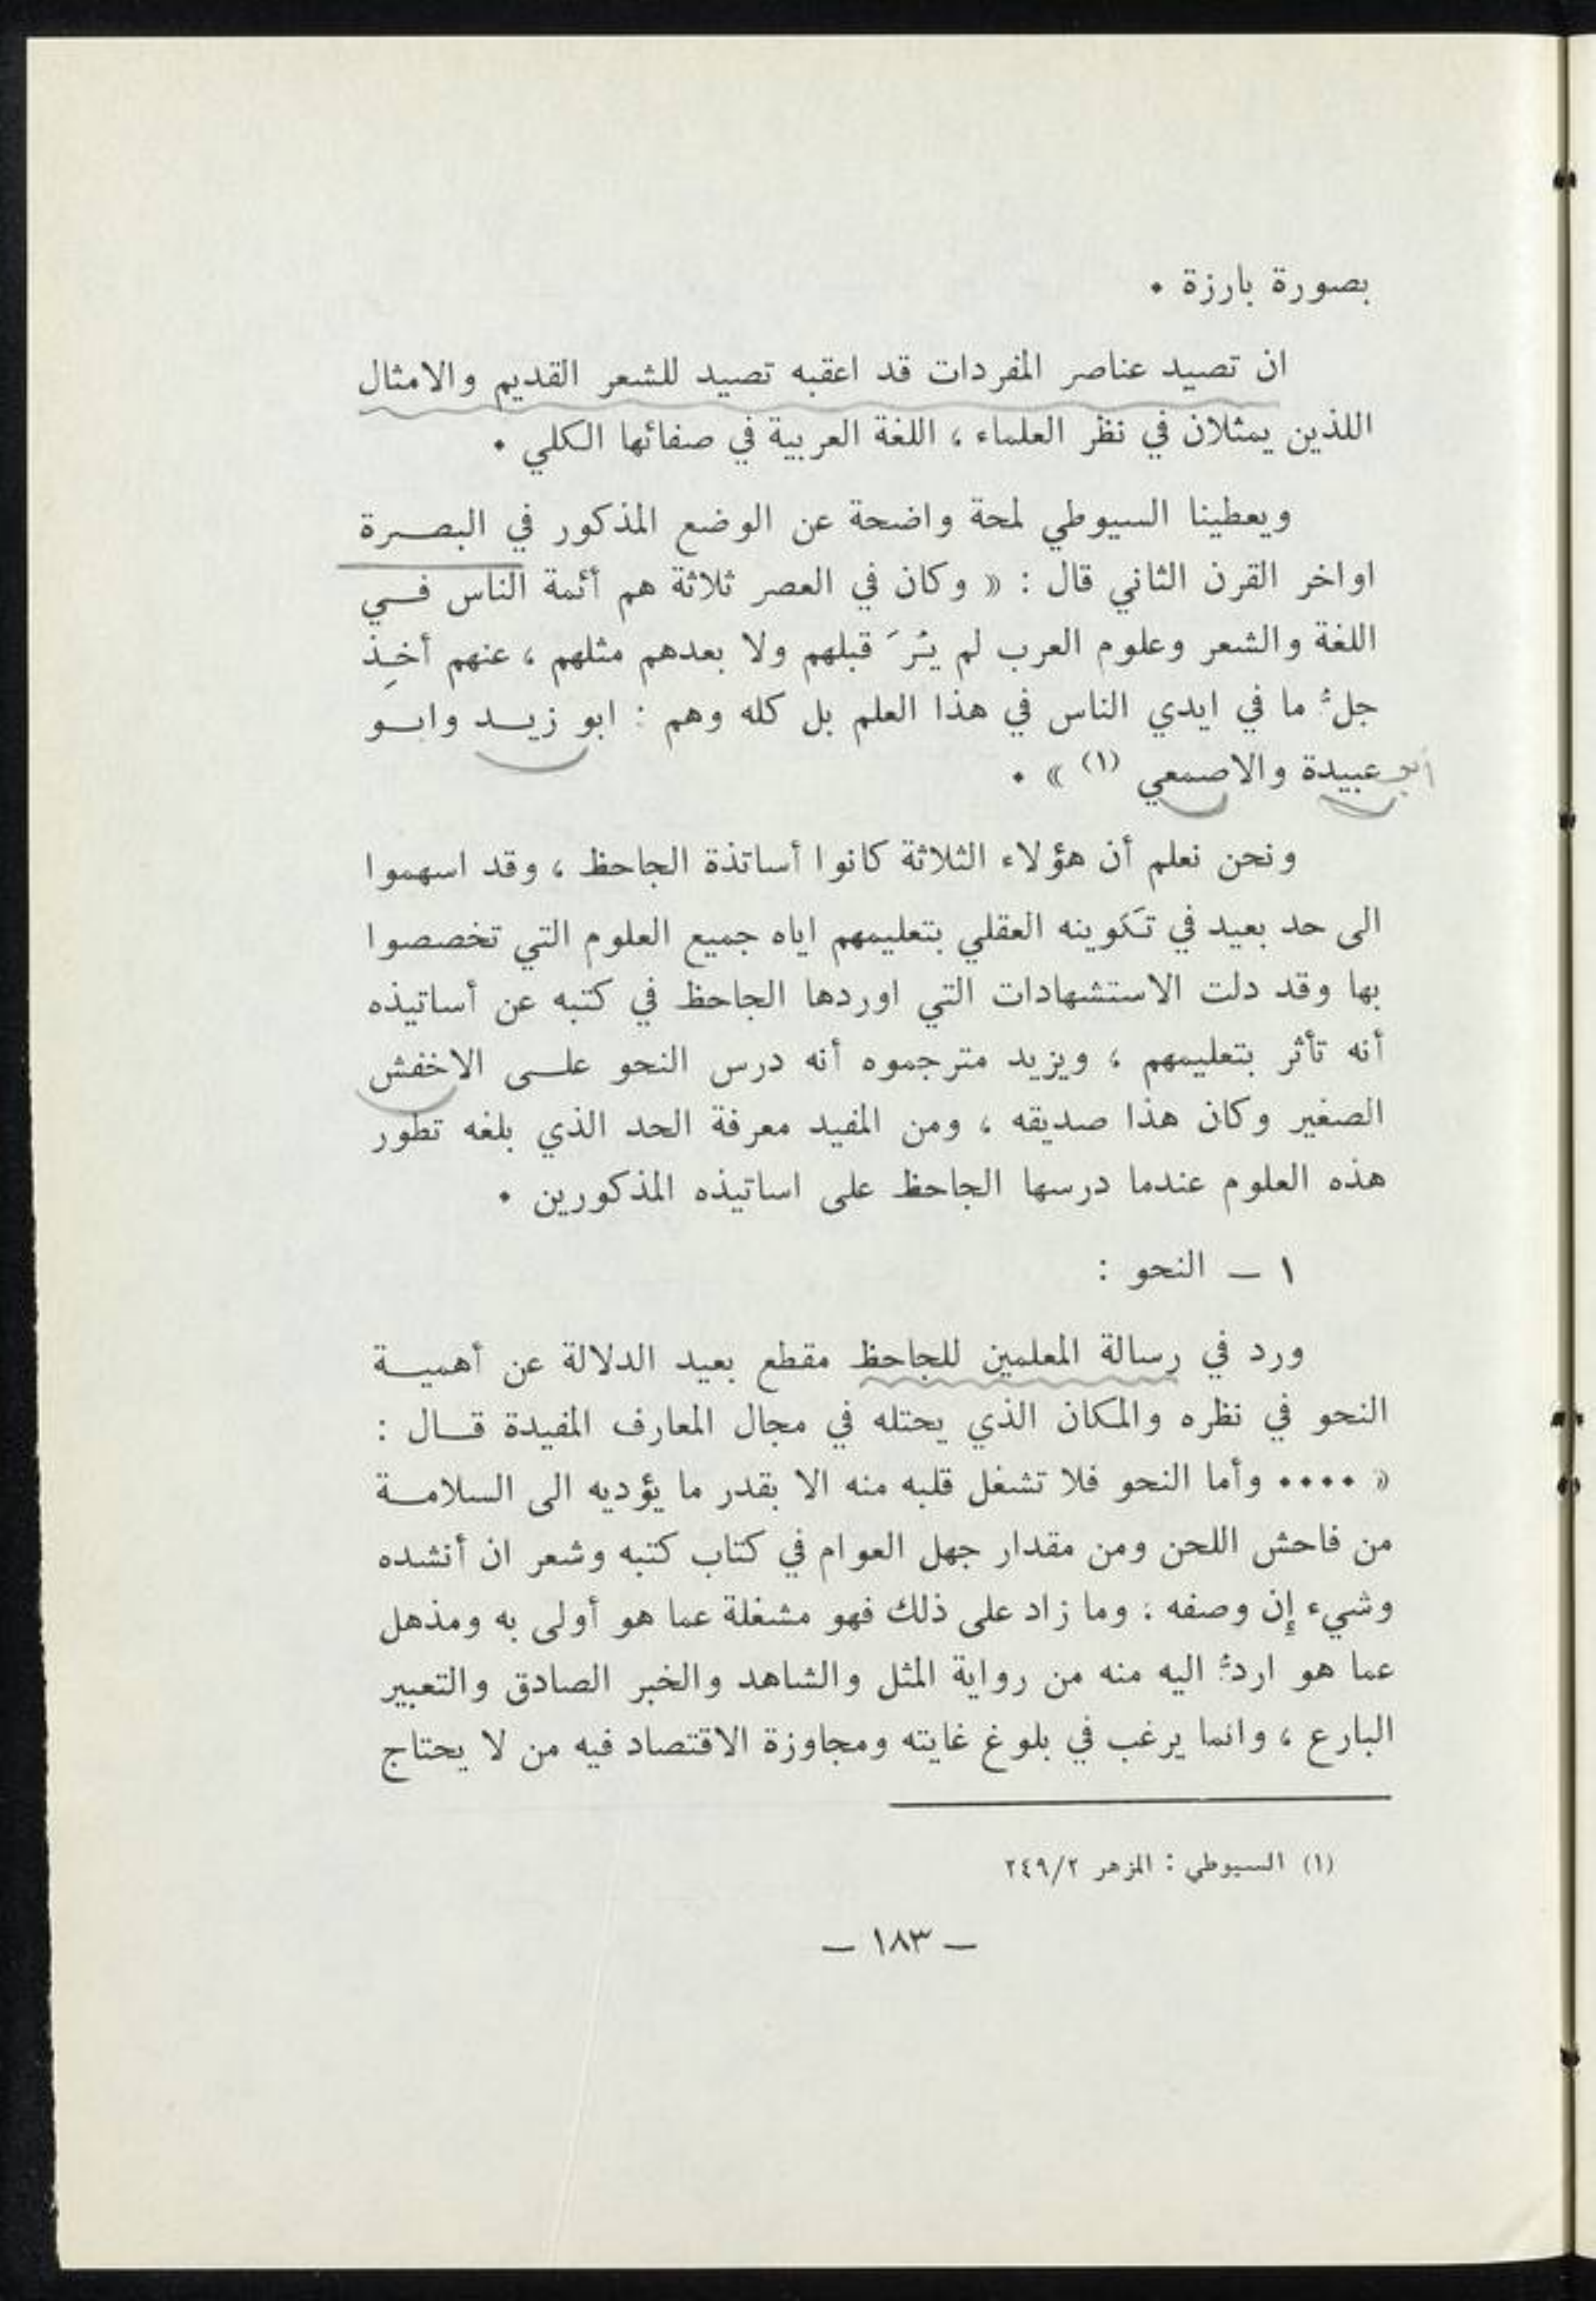 بصورة بارزة .
ان تصيد عناصر المفردات قد اعقبه تصيد للشعر القديم والامثال
اللذين يمثلان في نظر العلماء ، اللغة العربية في صفائها الكلي .
ويعطينا السيوطي لمحة واضحة عن الوضع المذكور في البصرة
اواخر القرن الثاني قال : « وكان في العصر ثلاثة هم أئمة الناس في
اللغة والشعر وعلوم العرب لم يُرَ قبلهم ولا بعدهم مثلهم ، عنهم أخِذ
جلُّ ما في ايدي الناس في هذا العلم بل كله وهم : ابو زيد وابو
أبو عبيدة والاصمعي (١) » .
ونحن نعلم أن هؤلاء الثلاثة كانوا أساتذة الجاحظ ، وقد اسهموا
الى حد بعيد في تكوينه العقلي بتعليمهم اياه جميع العلوم التي تخصصوا
بها وقد دلت الاستشهادات التي اوردها الجاحظ في كتبه عن أساتيذه
أنه تأثر بتعليمهم ؛ ويزيد مترجموه أنه درس النحو على الاخفش
الصغير وكان هذا صديقه ، ومن المفيد معرفة الحد الذي بلغه تطور
هذه العلوم عندما درسها الجاحظ على اساتيذه المذكورين .
١ – النحو :
ورد في رسالة المعلمين للجاحظ مقطع بعيد الدلالة عن أهمية
النحو في نظره والمكان الذي يحتله في مجال المعارف المفيدة قال :
« .... وأما النحو فلا تشغل قلبه منه الا بقدر ما يؤديه الى السلامة
من فاحش اللحن ومن مقدار جهل العوام في كتاب كتبه وشعر ان أنشده
وشيء إن وصفه ؛ وما زاد على ذلك فهو مشغلة عما هو أولى به ومذهل
عما هو اردُّ اليه منه من رواية المثل والشاهد والخبر الصادق والتعبير
البارع ، وانما يرغب في بلوغ غايته ومجاوزة الاقتصاد فيه من لا يحتاج
(١) السيوطي : المزهر ٢٤٩/٢
– ١٨٣ –